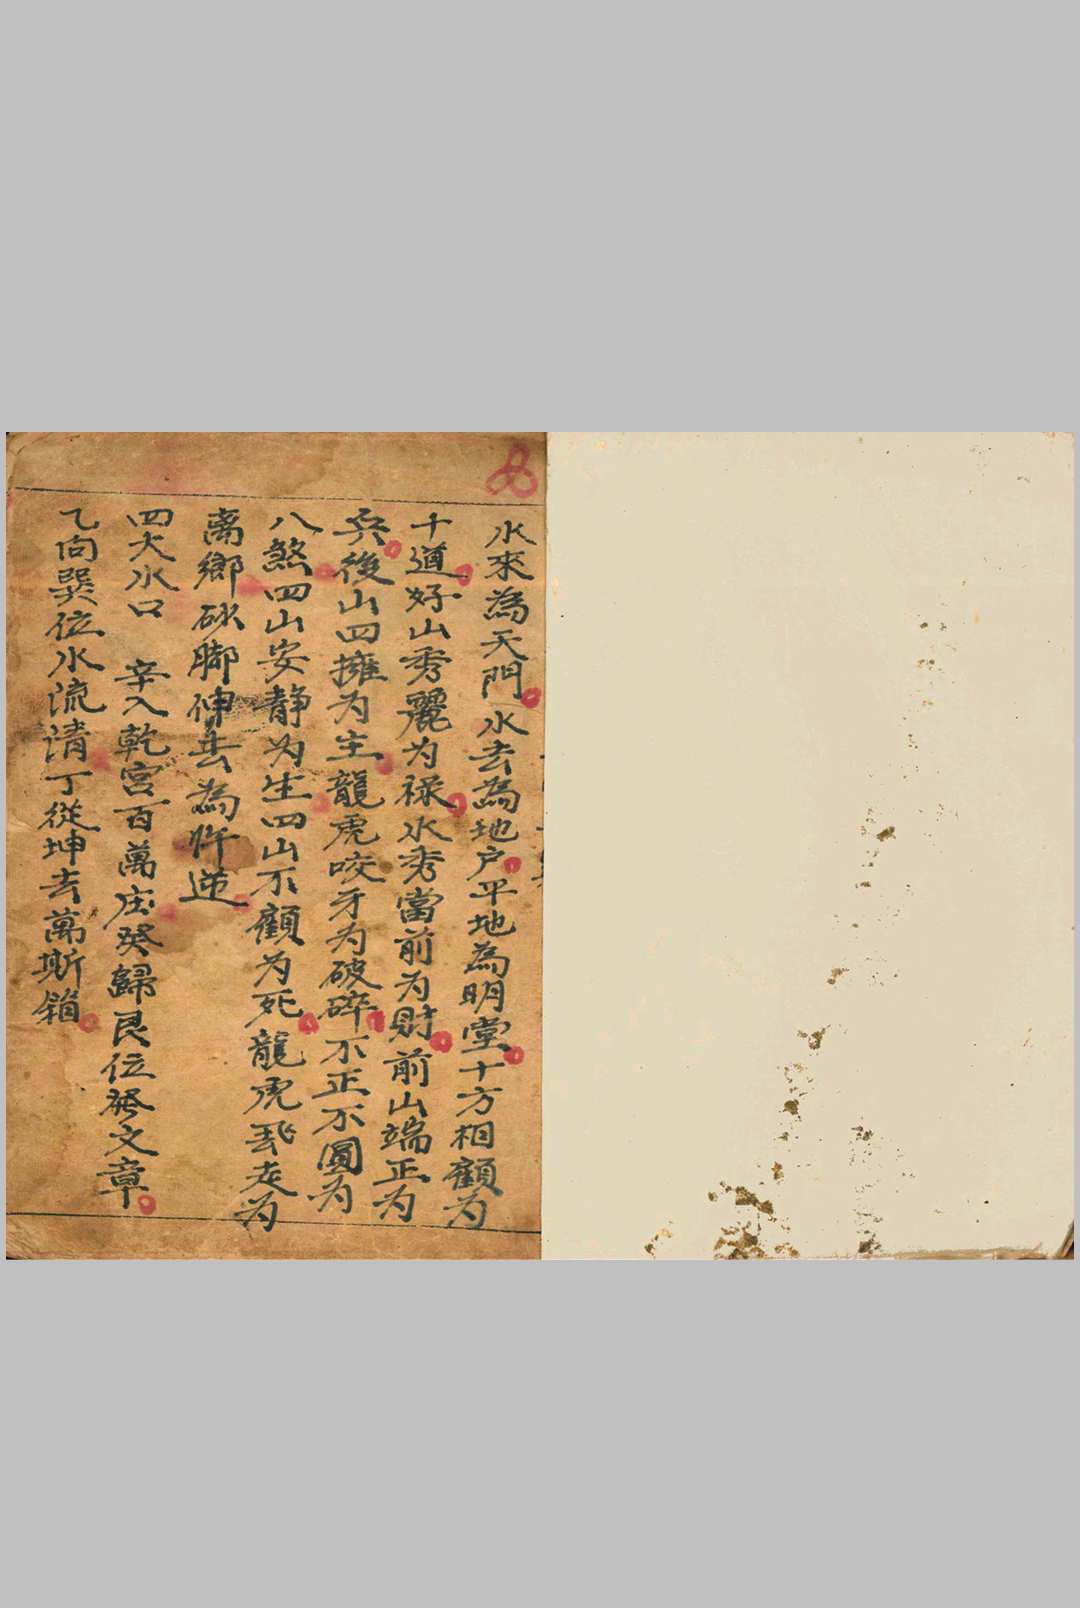 水來為天門水去為地户平地為明堂十方相顧为
十道好山秀麗为禄水秀當前为財前山端正为
兵後山四擁为主龍虎咬牙为破碎不正不圓为
八煞四山安静为生四山不顧为死龍虎飛走为
离鄉砍脚伸去為忤逆
四大水口 辛入乾宫百萬庄癸歸艮位發文章
乙向巽位水流清丁從坤去萬斯箱